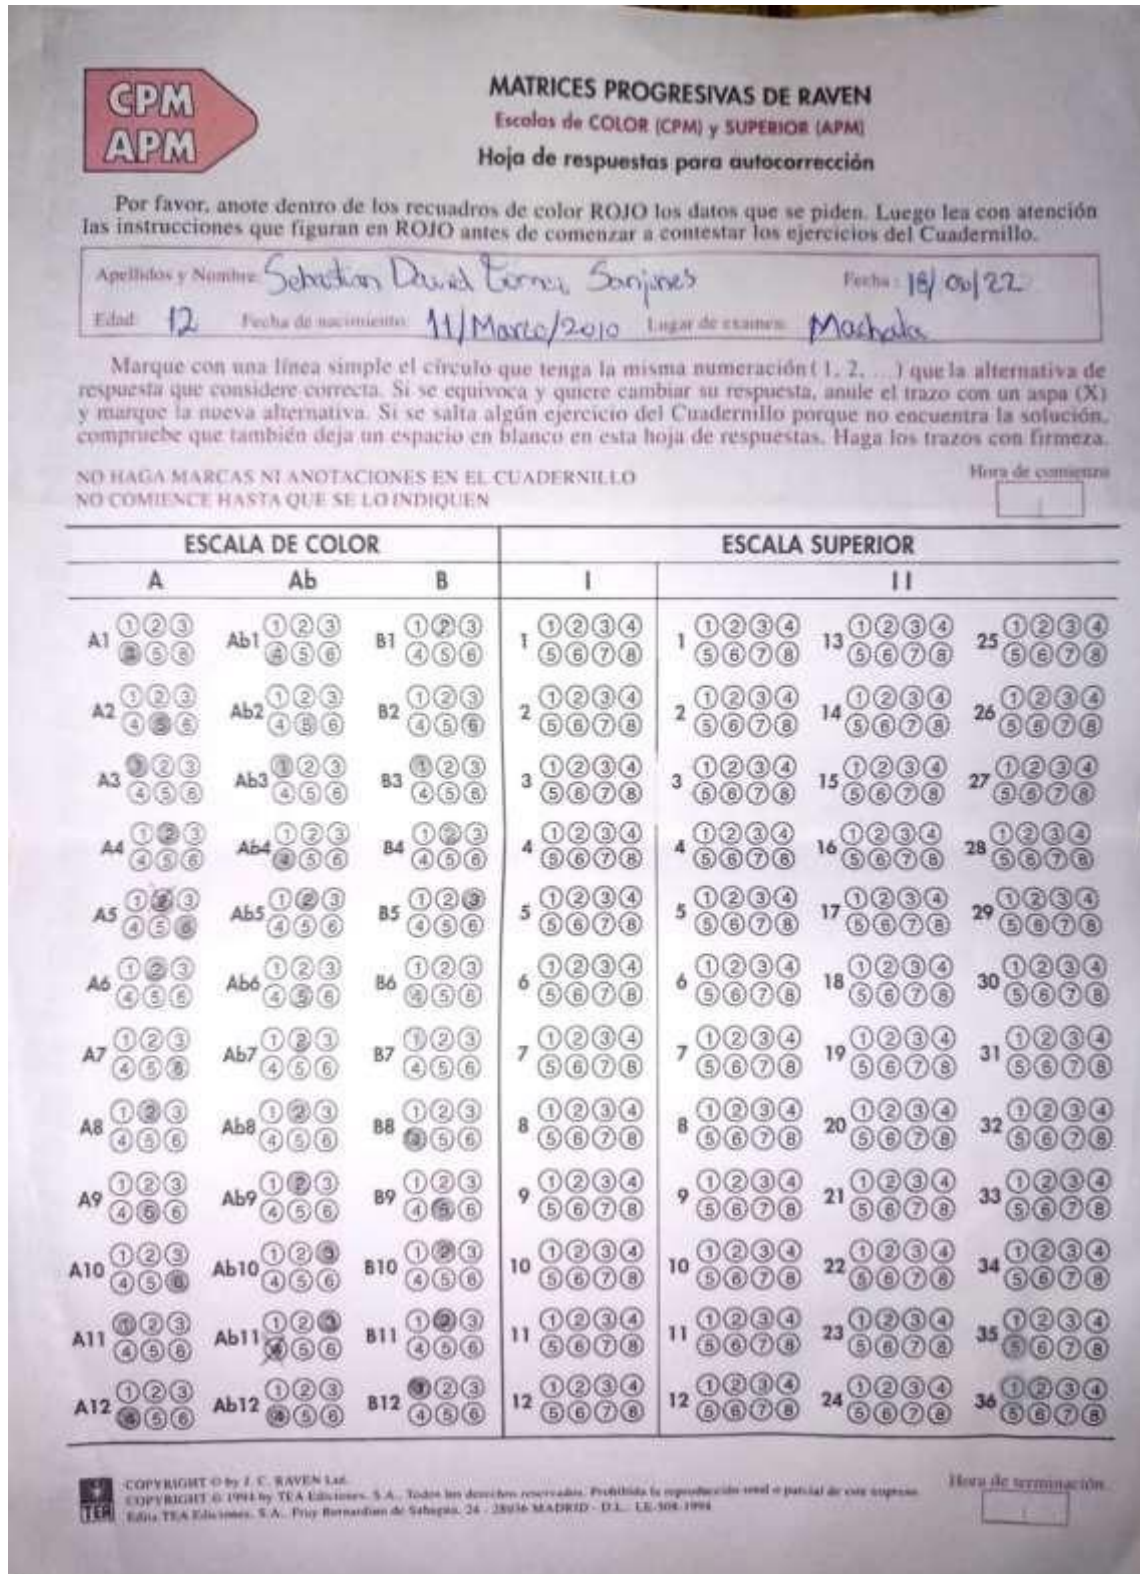 CPM
APM
MATRICES PROGRESIVAS DE RAVEN
Escalas de COLOR (CPM) y SUPERIOR (APM)
Hoja de respuestas para autocorrección
Por favor, anote dentro de los recuadros de color ROJO los datos que se piden. Luego lea con atención
las instrucciones que figuran en ROJO antes de comenzar a contestar los ejercicios del Cuadernillo.
Apellidos y Nombre: Sebastian David Sanjines Fecha: 18/ /22
Edad: 12 Fecha de nacimiento: 11/Marzo/2010 Lugar de examen: Machala
Marque con una línea simple el círculo que tenga la misma numeración (1, 2, ...) que la alternativa de
respuesta que considere correcta. Si se equivoca y quiere cambiar su respuesta, anule el trazo con un aspa (X)
y marque la nueva alternativa. Si se salta algún ejercicio del Cuadernillo porque no encuentra la solución,
compruebe que también deja un espacio en blanco en esta hoja de respuestas. Haga los trazos con firmeza.
NO HAGA MARCAS NI ANOTACIONES EN EL CUADERNILLO
NO COMIENCE HASTA QUE SE LO INDIQUEN
Hora de comienzo
ESCALA DE COLOR ESCALA SUPERIOR
A Ab B I II
A1 1 2 3 4 5 6 Ab1 1 2 3 4 5 6 B1 1 2 3 4 5 6 1 1 2 3 4 5 6 7 8 1 1 2 3 4 5 6 7 8 13 1 2 3 4 5 6 7 8 25 1 2 3 4 5 6 7 8
A2 1 2 3 4 5 6 Ab2 1 2 3 4 5 6 B2 1 2 3 4 5 6 2 1 2 3 4 5 6 7 8 2 1 2 3 4 5 6 7 8 14 1 2 3 4 5 6 7 8 26 1 2 3 4 5 6 7 8
A3 1 2 3 4 5 6 Ab3 1 2 3 4 5 6 B3 1 2 3 4 5 6 3 1 2 3 4 5 6 7 8 3 1 2 3 4 5 6 7 8 15 1 2 3 4 5 6 7 8 27 1 2 3 4 5 6 7 8
A4 1 2 3 4 5 6 Ab4 1 2 3 4 5 6 B4 1 2 3 4 5 6 4 1 2 3 4 5 6 7 8 4 1 2 3 4 5 6 7 8 16 1 2 3 4 5 6 7 8 28 1 2 3 4 5 6 7 8
A5 1 2 3 4 5 6 Ab5 1 2 3 4 5 6 B5 1 2 3 4 5 6 5 1 2 3 4 5 6 7 8 5 1 2 3 4 5 6 7 8 17 1 2 3 4 5 6 7 8 29 1 2 3 4 5 6 7 8
A6 1 2 3 4 5 6 Ab6 1 2 3 4 5 6 B6 1 2 3 4 5 6 6 1 2 3 4 5 6 7 8 6 1 2 3 4 5 6 7 8 18 1 2 3 4 5 6 7 8 30 1 2 3 4 5 6 7 8
A7 1 2 3 4 5 6 Ab7 1 2 3 4 5 6 B7 1 2 3 4 5 6 7 1 2 3 4 5 6 7 8 7 1 2 3 4 5 6 7 8 19 1 2 3 4 5 6 7 8 31 1 2 3 4 5 6 7 8
A8 1 2 3 4 5 6 Ab8 1 2 3 4 5 6 B8 1 2 3 4 5 6 8 1 2 3 4 5 6 7 8 8 1 2 3 4 5 6 7 8 20 1 2 3 4 5 6 7 8 32 1 2 3 4 5 6 7 8
A9 1 2 3 4 5 6 Ab9 1 2 3 4 5 6 B9 1 2 3 4 5 6 9 1 2 3 4 5 6 7 8 9 1 2 3 4 5 6 7 8 21 1 2 3 4 5 6 7 8 33 1 2 3 4 5 6 7 8
A10 1 2 3 4 5 6 Ab10 1 2 3 4 5 6 B10 1 2 3 4 5 6 10 1 2 3 4 5 6 7 8 10 1 2 3 4 5 6 7 8 22 1 2 3 4 5 6 7 8 34 1 2 3 4 5 6 7 8
A11 1 2 3 4 5 6 Ab11 1 2 3 4 5 6 B11 1 2 3 4 5 6 11 1 2 3 4 5 6 7 8 11 1 2 3 4 5 6 7 8 23 1 2 3 4 5 6 7 8 35 1 2 3 4 5 6 7 8
A12 1 2 3 4 5 6 Ab12 1 2 3 4 5 6 B12 1 2 3 4 5 6 12 1 2 3 4 5 6 7 8 12 1 2 3 4 5 6 7 8 24 1 2 3 4 5 6 7 8 36 1 2 3 4 5 6 7 8
TEA
COPYRIGHT © by J. C. RAVEN Ltd.
COPYRIGHT © 1994 by TEA Ediciones, S.A. Todos los derechos reservados. Prohibida la reproducción total o parcial de este impreso.
Edita TEA Ediciones, S.A. Fray Bernardino de Sahagún, 24 - 28036 MADRID - D.L. LE-508-1994
Hora de terminación